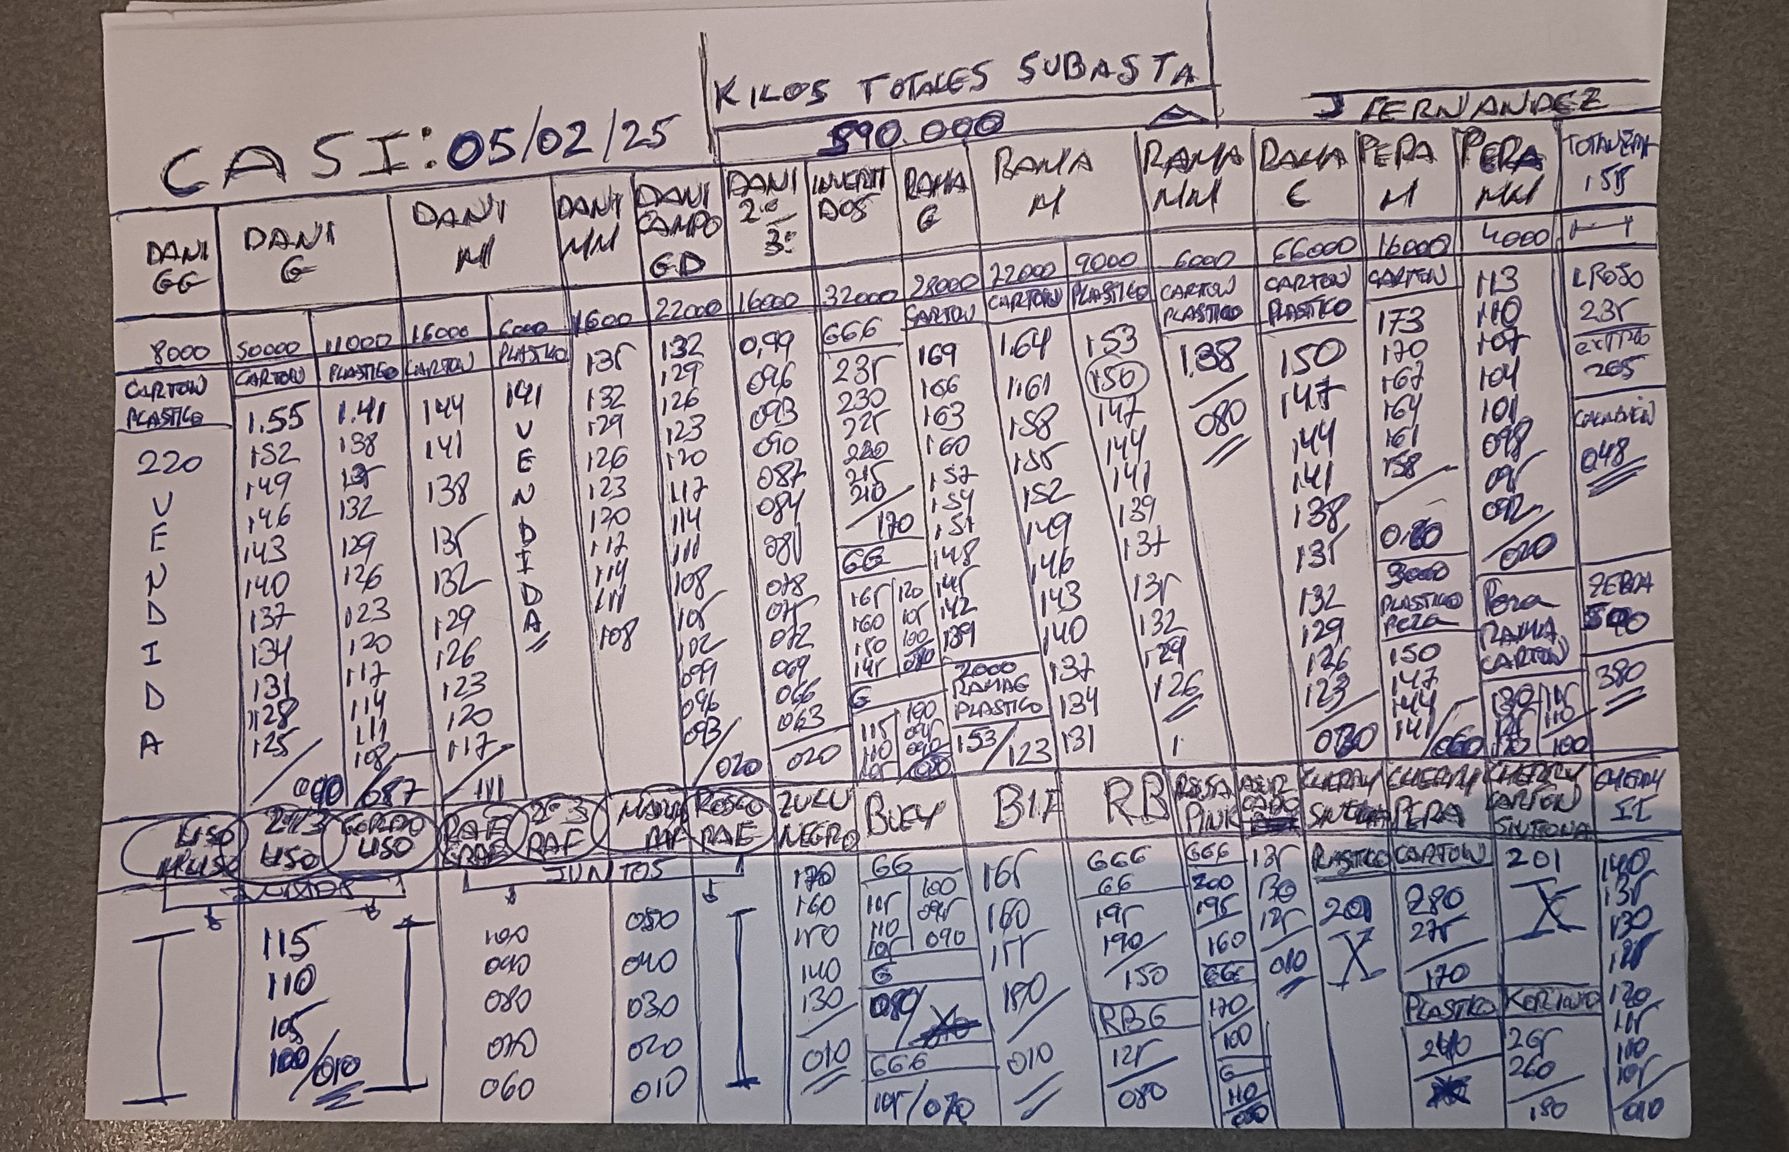 KILOS TOTALES SUBASTA
590.000
J FERNANDEZ
CASI: 05/02/25
DANI GG
DANI G
DANI M
DANI MM
DANI CAMPO GD
DANI 2ª 3ª
INVERTIDOS
RAMA G
RAMA M
RAMA MM
RAMA C
PERA M
PERA MM
155
8000
50000
11000
16000
6000
1600
22000
16000
32000
28000
22000
9000
6000
66000
16000
4000
CARTON PLASTICO
220
VENDIDA
CARTON
1.55
152
149
146
143
140
137
134
131
128
125
090
PLASTICO
1.41
138
135
132
129
126
123
120
117
114
111
108
087
CARTON
144
141
138
135
132
129
126
123
120
117
111
PLASTICO
141
VENDIDA
135
132
129
126
123
120
117
114
111
108
132
129
126
123
120
117
114
111
108
105
102
099
096
093
020
0,99
096
093
090
087
084
081
078
075
072
069
066
063
020
GGG
235
230
225
220
215
210
170
GG
165 120
160 105
150 100
145
G
115 100
110 095
105
CARTON
169
166
163
160
157
154
151
148
145
142
139
2000
RAMA G
PLASTICO
153/123
CARTON
1.64
1.61
158
155
152
149
146
143
140
137
134
131
PLASTICO
153
150
147
144
141
139
137
135
132
129
126
CARTON
PLASTICO
1.38
080
CARTON
PLASTICO
150
147
144
141
138
135
132
129
126
123
CARTON
173
170
167
164
161
158
3000
PLASTICO
Pera
150
147
144
141
060
113
110
107
104
101
098
095
092
020
Pera
RAMA
CARTON
110
100
LROSO
235
205
048
ZEBRA
380
LISO
2ª 3 LISO
GORDO LISO
2ª 3 RAF
RAF
ZULU NEGRO
BUEY
RB
PINK
CHERRY
CHERRY PERA
CHERRY CARTON SINTONA
CHERRY II
JUNTOS
JUNTOS
115
110
105
100/010
100
090
080
070
060
050
040
030
020
010
170
160
150
140
130
010
GG
105 100
110 095
105 090
G
080
GGG
105/070
165
160
155
010
GGG
GG
195
190
150
RBG
125
080
GGG
200
195
160
GG
170
100
G
110
135
130
125
010
PLASTICO
201
X
CARTON
280
275
170
PLASTICO
201
X
265
260
180
140
135
130
125
120
115
110
105
010